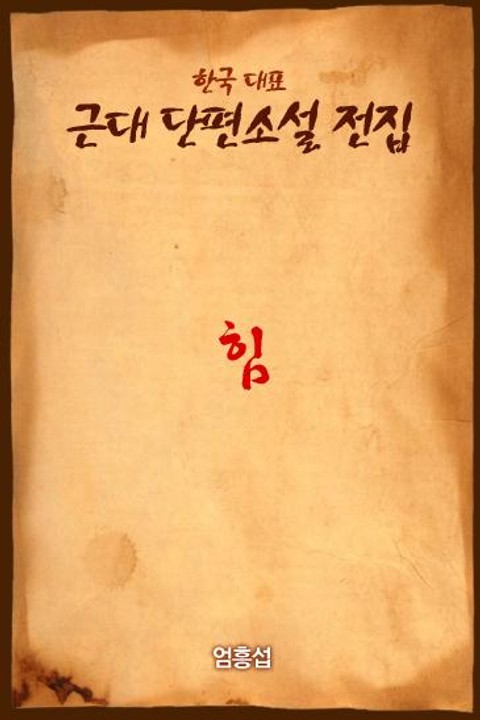 한국 대표
근대 단편소설 전집
힘
엄흥섭